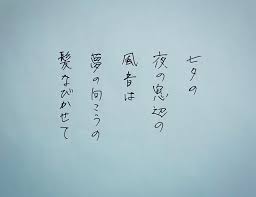 七夕の
夜の窓辺の
風音は
夢の向こうの
髪なびかせて